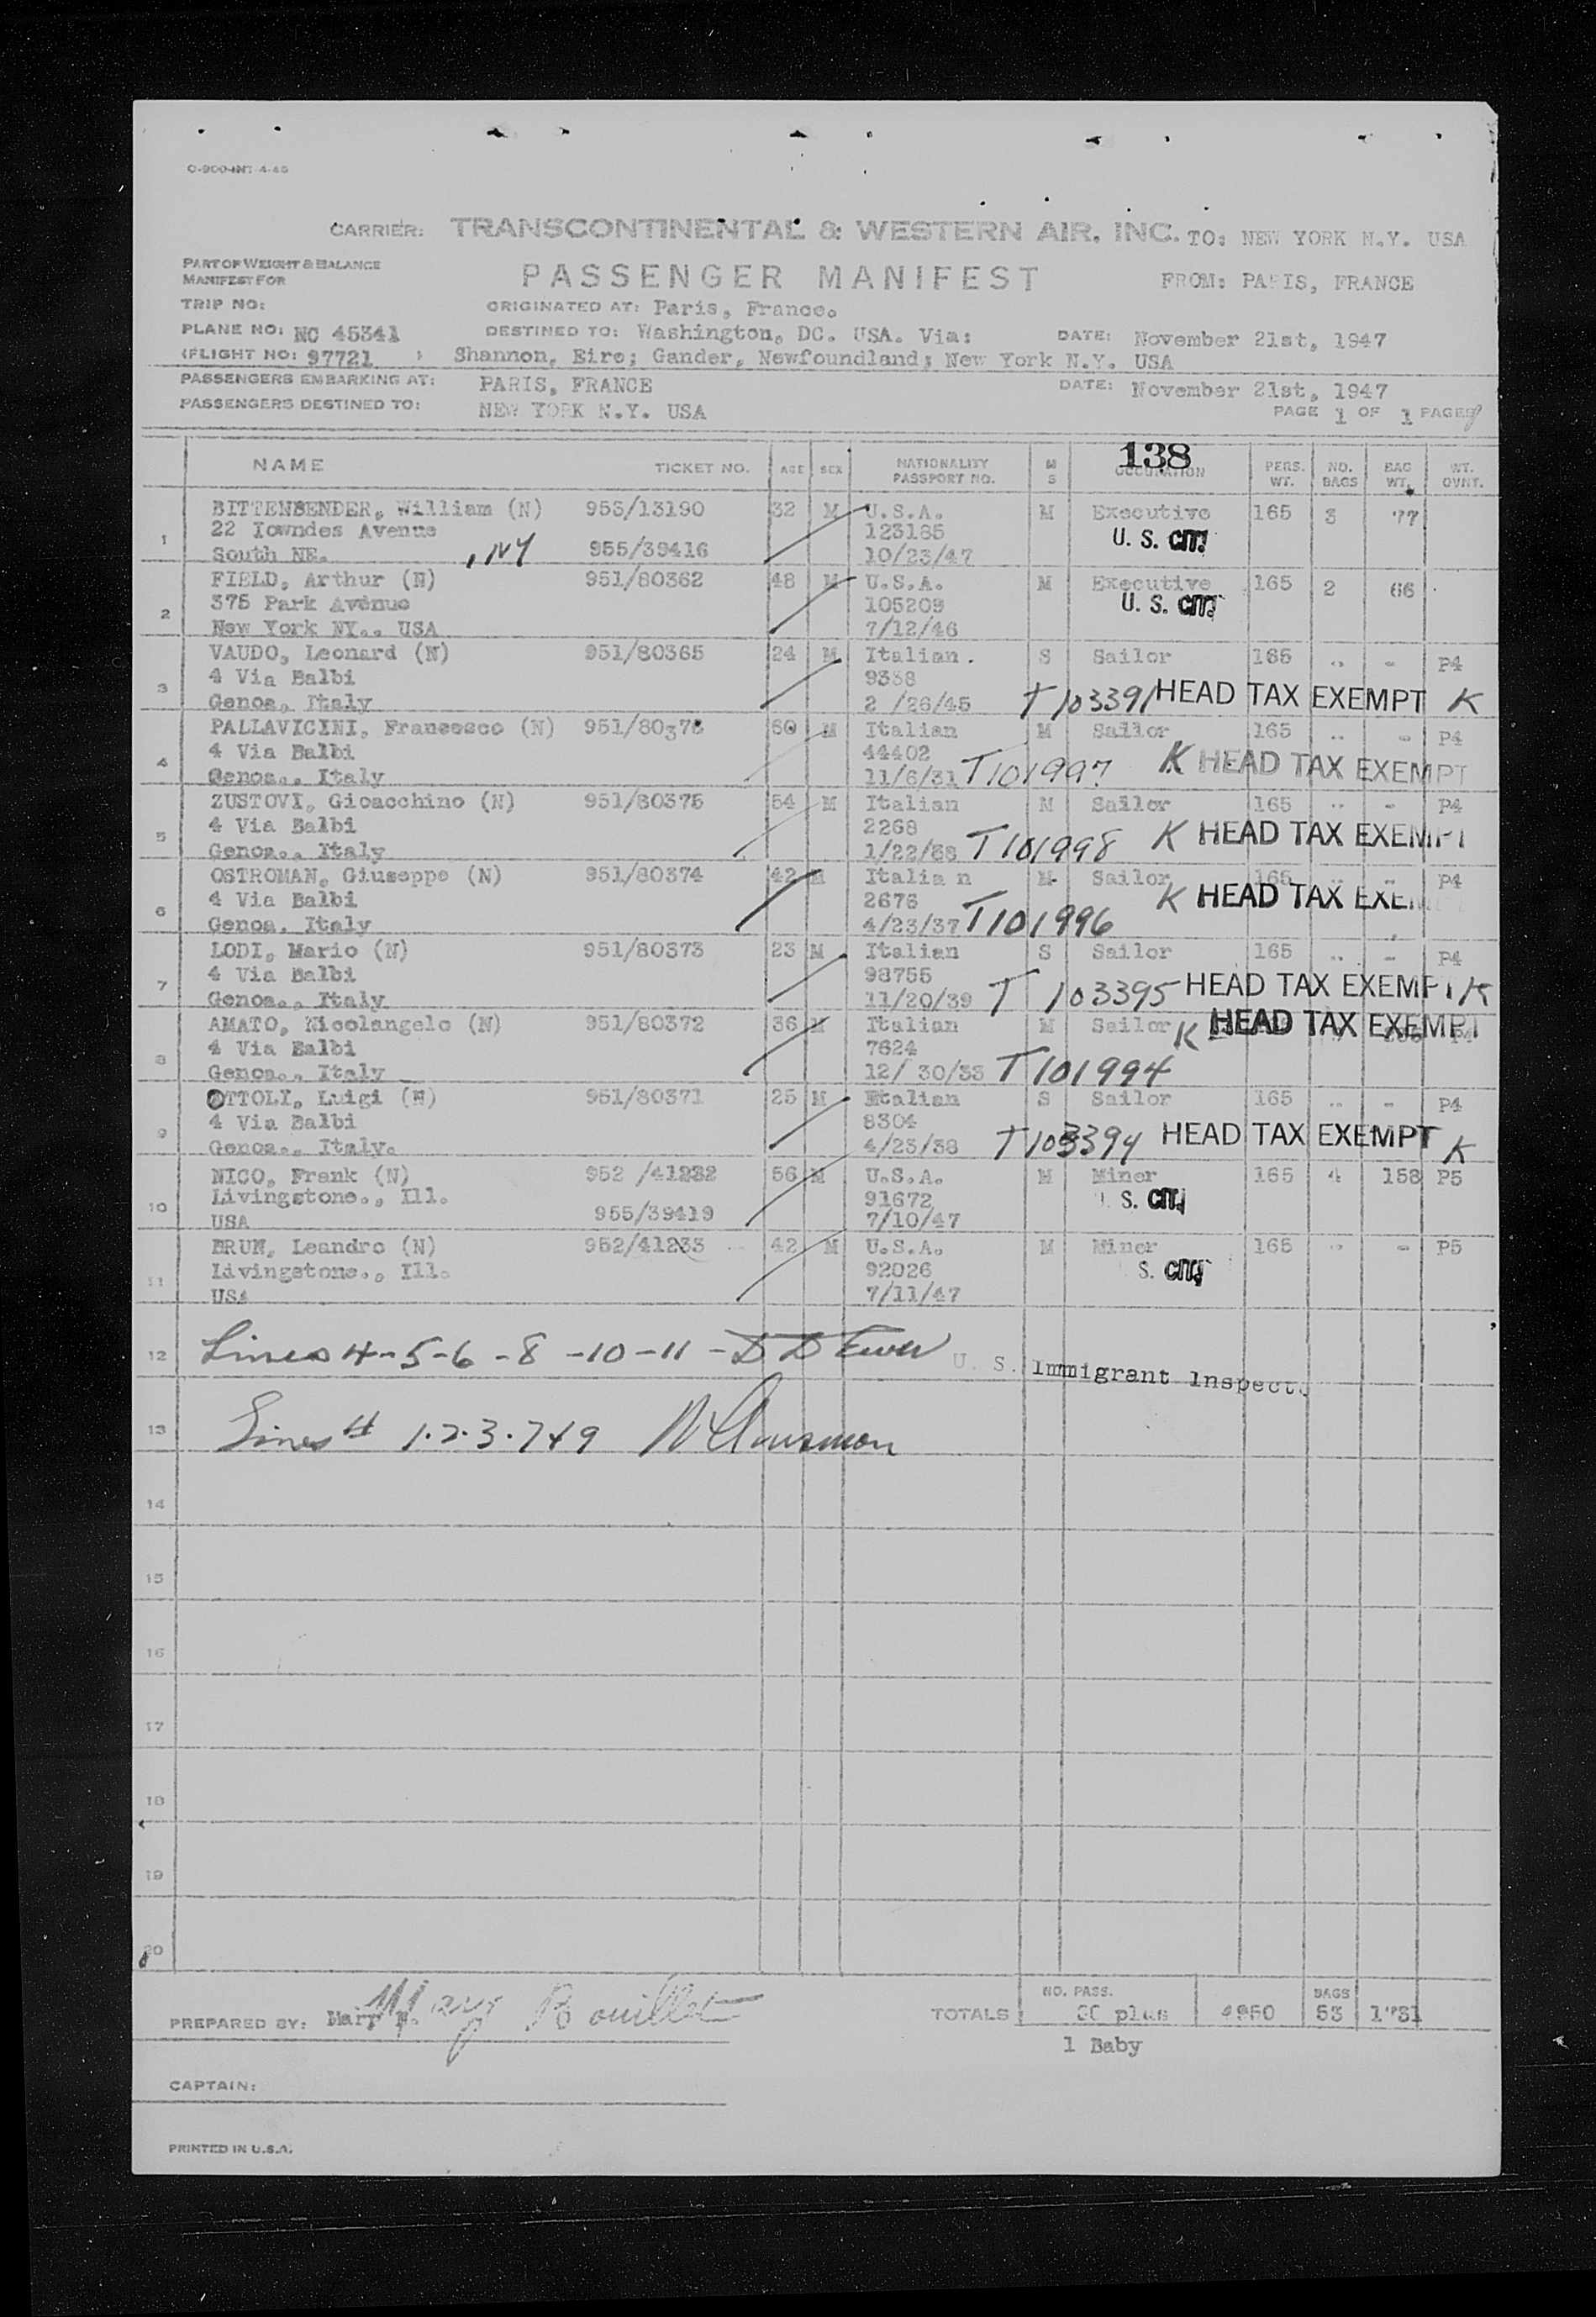 CARRIER: TRANSCONTINENTAL & WESTERN AIR, INC. TO: NEW YORK N.Y. USA
PART OF WEIGHT & BALANCE
MANIFEST FOR
PASSENGER MANIFEST FROM: PARIS, FRANCE
TRIP NO: ORIGINATED AT: Paris, France.
PLANE NO: NC 45341 DESTINED TO: Washington, DC. USA. Via: DATE: November 21st, 1947
(FLIGHT NO: 97721 ) Shannon, Eire; Gander, Newfoundland; New York N.Y. USA
PASSENGERS EMBARKING AT: PARIS, FRANCE DATE: November 21st, 1947
PASSENGERS DESTINED TO: NEW YORK N.Y. USA PAGE 1 OF 1 PAGES
138
NAME TICKET NO. AGE SEX NATIONALITY PASSPORT NO. M S OCCUPATION PERS. WT. NO. BAGS BAG WT. WT. OVNT.
1 BITTENBENDER, William (N) 955/13190 32 M U.S.A. M Executive 165 3 77
22 Iowndes Avenue 123185 U. S. CIT.
South NE. , NY 955/39416 10/23/47
2 FIELD, Arthur (N) 951/80362 48 M U.S.A. M Executive 165 2 66
375 Park Avenue 105209 U. S. CIT.
New York NY., USA 7/12/46
3 VAUDO, Leonard (N) 951/80365 24 M Italian. S Sailor 165 .. - P4
4 Via Balbi 9338
Genoa, Italy 2 /26/45 T103391 HEAD TAX EXEMPT K
4 PALLAVICINI, Francesco (N) 951/80376 50 M Italian M Sailor 165 .. - P4
4 Via Balbi 44402
Genoa., Italy 11/6/31 T101997 K HEAD TAX EXEMPT
5 ZUSTOVI, Gioacchino (N) 951/80375 54 M Italian M Sailor 165 .. - P4
4 Via Balbi 2268
Genoa., Italy 1/22/38 T101998 K HEAD TAX EXEMPT
6 OSTROMAN, Giuseppe (N) 951/80374 42 M Italia n M Sailor 165 .. - P4
4 Via Balbi 2676 K HEAD TAX EXEM
Genoa, Italy 4/23/37 T101996
7 LODI, Mario (N) 951/80373 23 M Italian S Sailor 165 .. - P4
4 Via Balbi 98755
Genoa., Italy 11/20/39 T 103395 HEAD TAX EXEMPT K
8 AMATO, Nicolangelo (N) 951/80372 36 M Italian M Sailor K HEAD TAX EXEMPT P4
4 Via Balbi 7624
Genoa., Italy 12/ 30/33 T101994
9 OTTOLI, Luigi (N) 951/80371 25 M Italian S Sailor 165 .. - P4
4 Via Balbi 8304
Genoa., Italy. 4/23/38 T103394 HEAD TAX EXEMPT K
10 NICO, Frank (N) 952 /41232 56 M U.S.A. M Miner 165 4 158 P5
Livingstone., Ill. 91672 U. S. CIT.
USA 955/39419 7/10/47
11 BRUN, Leandro (N) 952/41233 42 M U.S.A. M Miner 165 .. - P5
Livingstone., Ill. 92026 S. CIT.
USA 7/11/47
12 Lines 4-5-6-8-10-11- U. S. Immigrant Inspect.
13 Lines # 1.2.3.7 & 9
14
15
16
17
18
19
20
NO. PASS. BAGS
PREPARED BY: Mary Bouillet TOTALS 30 plus 4950 53
1 Baby
CAPTAIN:
PRINTED IN U.S.A.